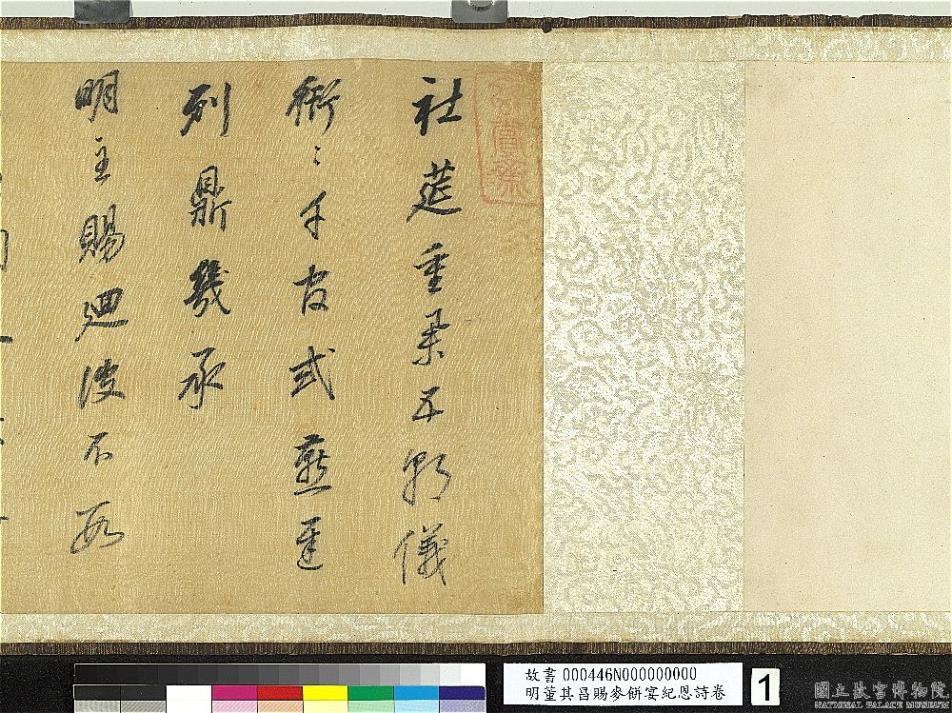 社筵重五朝儀
衎〻千官式燕遲
列鼎幾承
明主賜迴波不
玄賞齋
故書 000446N000000000
明董其昌賜麥餅宴紀恩詩卷
1
國立故宮博物院
NATIONAL PALACE MUSEUM